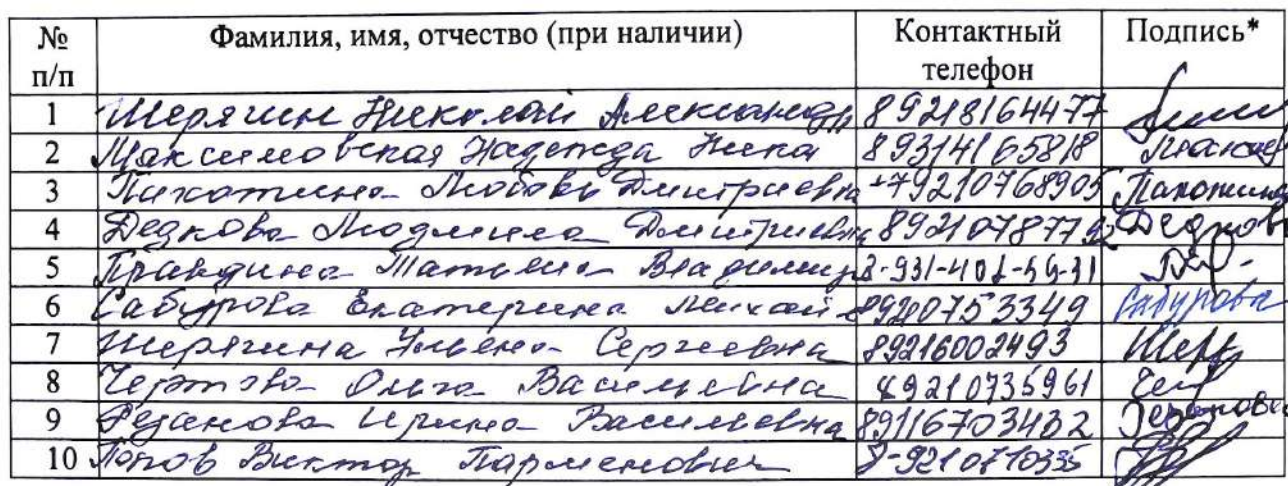 № п/п Фамилия, имя, отчество (при наличии) Контактный телефон Подпись*
1 Шерягин Николай Александр 89218164477
2 Максимовская Надежда Ника 89314165818
3 Пахотина Любовь Дмитриевна +79210768905 Пахотина
4 Дедкова Людмила Дмитриевна 89210787792 Дедкова
5 Правдина Татьяна Владимир 8-931-401-59-31
6 Сабурова Екатерина Михай 89210753349 Сабурова
7 Шерягина Ульяна Сергеевна 89216002493 Шер
8 Чертова Ольга Васильевна 89210735961
9 Резанова Ирина Васильевна 89116703432 Резанова
10 Попов Виктор Парменович 8-9210710335